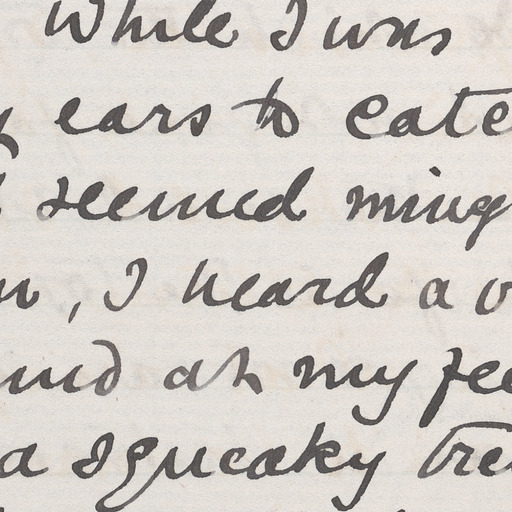 While I was
ears to catc
seemed ming
, I heard a v
und at my fee
a squeaky tre